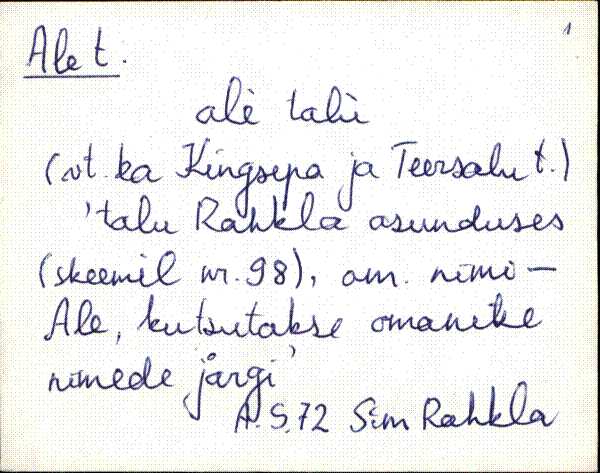 1
Ale t.
alè talù
(vt. ka Kingsepa ja Teersalu t.)
'talu Rahkla asunduses
(skeemil nr. 98), om. nimi –
Ale, kutsutakse omanike
nimede järgi'
A.S.72 Sim Rahkla